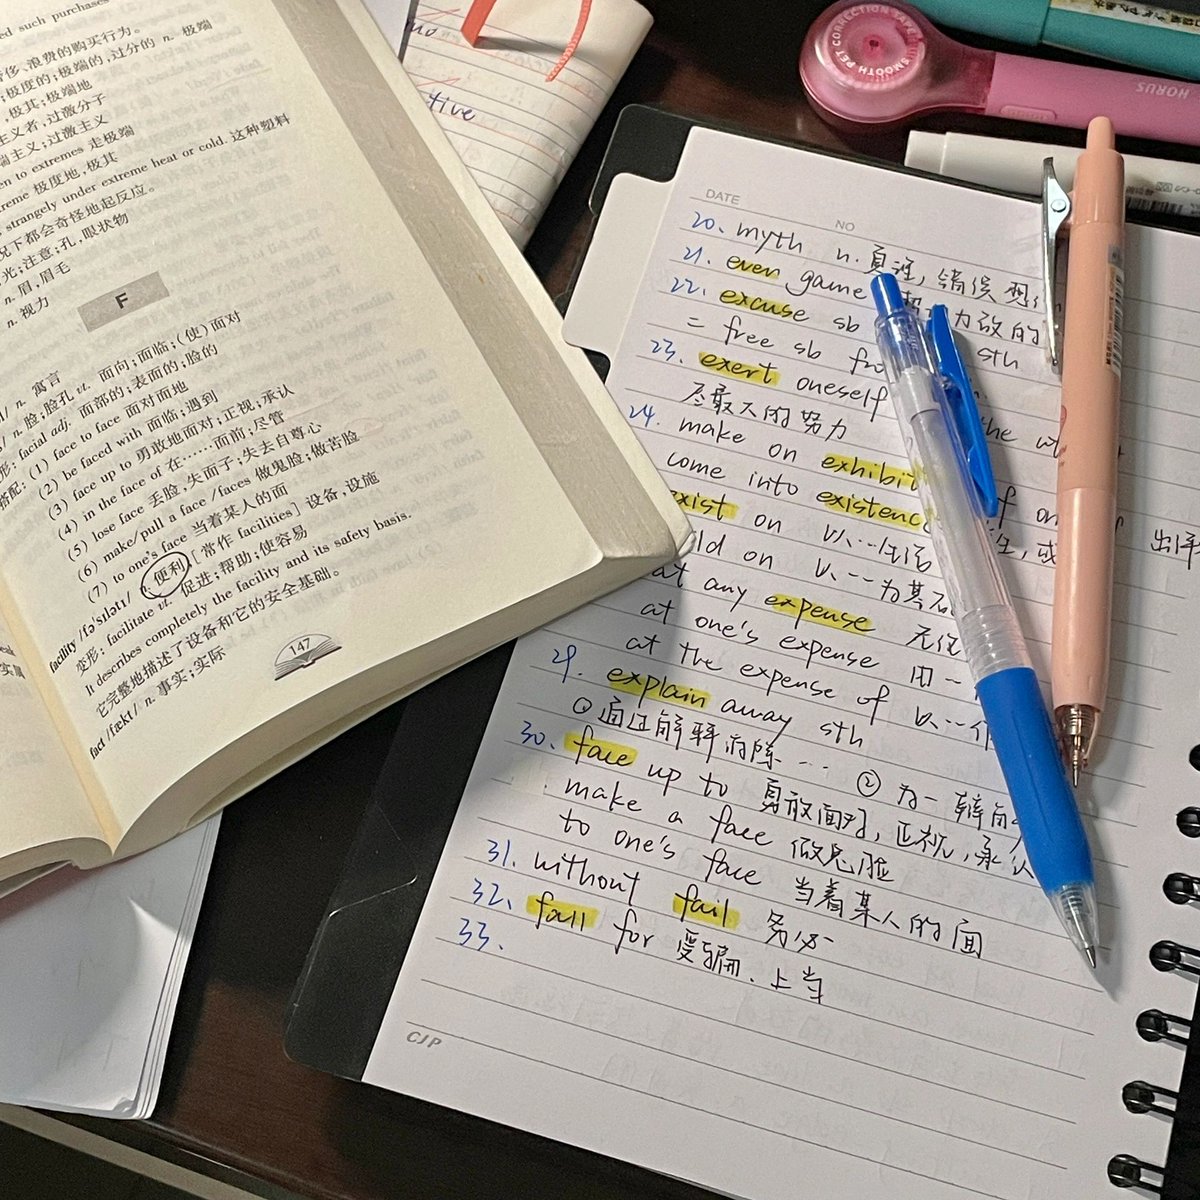 ed such purchases
侈、浪费的购买行为。
极度的;极端的,过分的 n. 极端
极其;极端地
主义者,过激分子
端主义;过激主义
en to extremes 走极端
reme 极度地,极其
strangely under extreme heat or cold. 这种塑料
况下都会奇怪地起反应。
光;注意;孔,眼状物
n. 眉,眉毛
n. 视力
F
n. 寓言
n. 脸;脸孔 vt. 面向;面临;(使)面对
形: facial adj. 面部的;表面的;脸的
搭配: (1) face to face 面对面地
(2) be faced with 面临;遇到
(3) face up to 勇敢地面对;正视;承认
(4) in the face of 在……面前;尽管
(5) lose face 丢脸,失面子;失去自尊心
(6) make/pull a face/faces 做鬼脸;做苦脸
(7) to one's face 当着某人的面
facility /fəˈsɪlətɪ/ n. 便利[常作 facilities] 设备,设施
变形: facilitate vt. 促进;帮助;使容易
It describes completely the facility and its safety basis.
它完整地描述了设备和它的安全基础。
fact /fækt/ n. 事实;实际
147
tive
CORRECTION TAPE
SMOOTH PET
HORUS
DATE
NO
20. myth n. 真理, 错误想
21. even game 力敌的
22. excuse sb sth
= free sb fro
23. exert oneself the
尽最大的努力
24. make an exhibit of on
come into existenc 生, 或 出现
exist on 以…生活
ld on 以…为基石
at any expense 无
at one's expense 由一
at the expense of 以…作
29. explain away sth
① 通过解释消除… ② 为一辩
30. face up to 勇敢面对, 正视, 承认
make a face 做鬼脸
to one's face 当着某人的面
31. without fail 务必
32. fall for 受骗、上当
33.
CJP